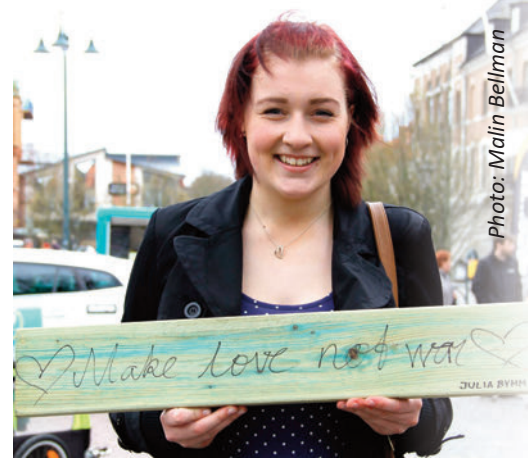 Photo: Malin Bellman
Make love not war
JULIA